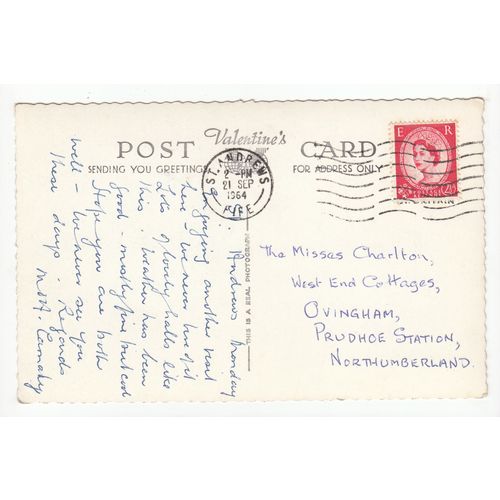 POST Valentine's CARD
SENDING YOU GREETINGS FOR ADDRESS ONLY
ST. ANDREWS
2 - PM
21 SEP
1964
FIFE
E R
THIS IS A REAL PHOTOGRAPH
Andrews Monday
Enjoying another visit
here we never tire of it
Lots of lovely halls like
this. Weather has been
good - mostly fine but cool
Hope you are both
well - we never see you
these days Regards
The Misses Charlton,
West End Cottages,
Ovingham,
Prudhoe Station,
Northumberland.